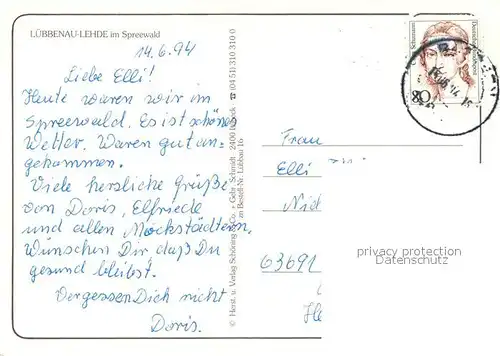 LÜBBENAU-LEHDE im Spreewald
14.6.94
Liebe Elli!
Heute waren wir im
Spreewald. Es ist schönes
Wetter. Waren gut an-
gekommen.
Viele herzliche Grüße
von Doris, Elfriede
und allen Möckstädtern.
Wünschen Dir, daß Du
gesund bleibst.
Vergessen Dich nicht
Doris.
© Herst. u. Verlag Schöning & Co. + Gebr. Schmidt · 2400 Lübeck ☎ (0451) 310310
zu Bestell-Nr. Lübbau 16
Schumann
Deutsche Bundespost
80
Frau
Elli
Nid
63691
privacy protection
Datenschutz
He